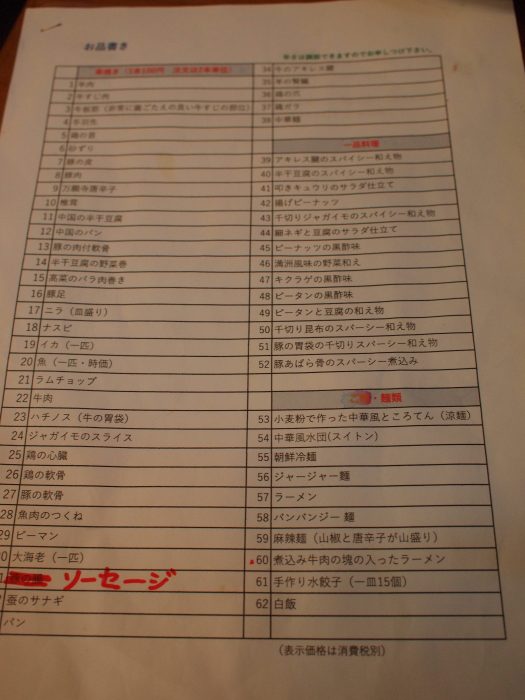 お品書き
辛さは調節できますのでお申しつけ下さい。
串焼き（1本100円 注文は2本単位）
1 羊肉
2 牛すじ肉
3 牛板筋（非常に歯ごたえの良い牛すじの部位）
4 手羽先
5 鶏の首
6 砂ずり
7 豚の皮
8 豚肉
9 万願寺唐辛子
10 椎茸
11 中国の半干豆腐
12 中国のパン
13 豚の肉付軟骨
14 半干豆腐の野菜巻
15 高菜のバラ肉巻き
16 豚足
17 ニラ（皿盛り）
18 ナスビ
19 イカ（一匹）
20 魚（一匹・時価）
21 ラムチョップ
22 牛肉
23 ハチノス（牛の胃袋）
24 ジャガイモのスライス
25 鶏の心臓
26 鶏の軟骨
27 豚の軟骨
28 魚肉のつくね
29 ピーマン
30 大海老（一匹）
ソーセージ
蚕のサナギ
パン
34 牛のアキレス腱
35 羊の腎臓
36 鶏の爪
37 鶏ガラ
38 中華麺
一品料理
39 アキレス腱のスパイシー和え物
40 半干豆腐のスパイシー和え物
41 叩きキュウリのサラダ仕立て
42 揚げピーナッツ
43 千切りジャガイモのスパイシー和え物
44 細ネギと豆腐のサラダ仕立て
45 ピーナッツの黒酢味
46 満洲風味の野菜和え
47 キクラゲの黒酢味
48 ピータンの黒酢味
49 ピータンと豆腐の和え物
50 千切り昆布のスパーシー和え物
51 豚の胃袋の千切りスパーシー和え物
52 豚あばら骨のスパーシー煮込み
・麺類
53 小麦粉で作った中華風ところてん（涼麺）
54 中華風水団(スイトン)
55 朝鮮冷麺
56 ジャージャー麺
57 ラーメン
58 バンバンジー麺
59 麻辣麺（山椒と唐辛子が山盛り）
60 煮込み牛肉の塊の入ったラーメン
61 手作り水餃子（一皿15個）
62 白飯
（表示価格は消費税別）